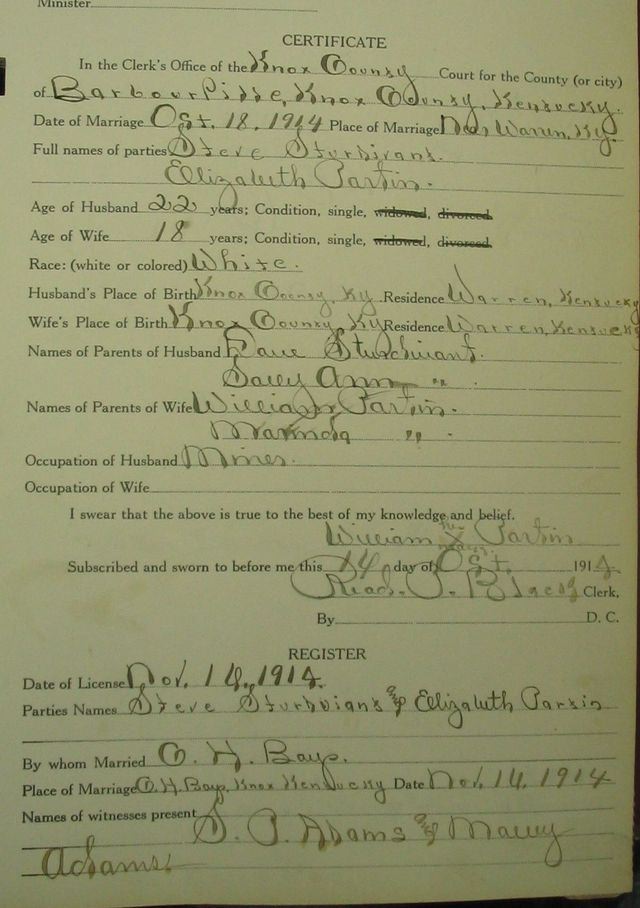 Minister
CERTIFICATE
In the Clerk's Office of the Knox County Court for the County (or city)
of Barbourville, Knox County, Kentucky.
Date of Marriage Oct. 18, 1914 Place of Marriage Near Warren, Ky.
Full names of parties Steve Sturdivant.
Ellizabuth Partin.
Age of Husband 22 years; Condition, single, widowed, divorced.
Age of Wife 18 years; Condition, single, widowed, divorced.
Race: (white or colored) White.
Husband's Place of Birth Knox County, Ky. Residence Warren, Kentucky
Wife's Place of Birth Knox County, Ky Residence Warren, Kentucky
Names of Parents of Husband Dave Sturdivant.
Sally Ann " .
Names of Parents of Wife William Partin.
" .
Occupation of Husband Miner.
Occupation of Wife
I swear that the above is true to the best of my knowledge and belief.
William his X mark Partin
Subscribed and sworn to before me this 14 day of Oct. 1914.
Read. P. Black Clerk,
By D. C.
REGISTER
Date of License Nov. 14, 1914.
Parties Names Steve Sturdviant & Ellizabuth Partin
By whom Married O. H. Bays.
Place of Marriage O. H. Bays, Knox Kentucky Date Nov, 14, 1914
Names of witnesses present S. P. Adams &
Adams.